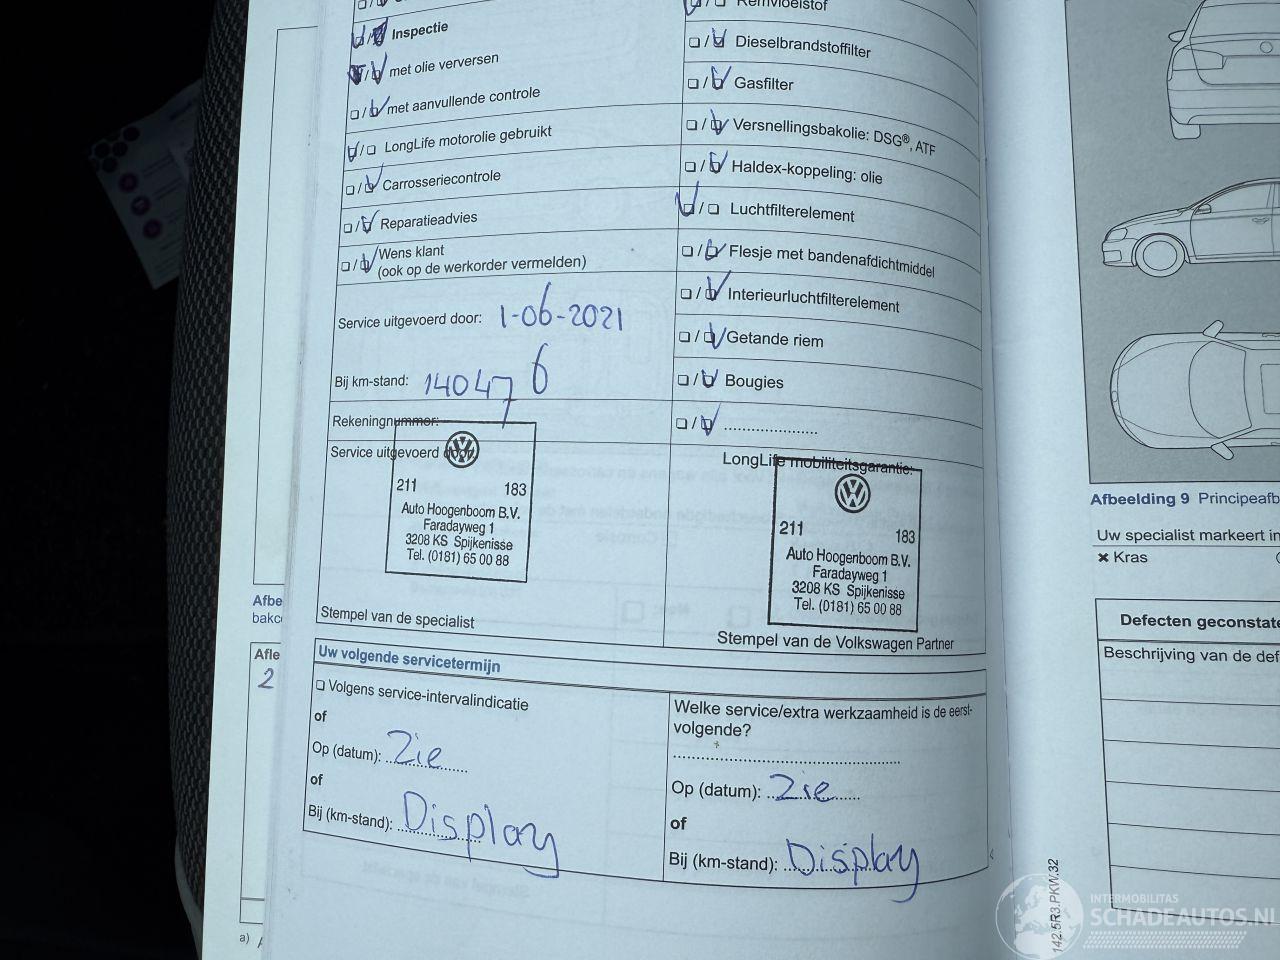 Inspectie
met olie verversen
met aanvullende controle
LongLife motorolie gebruikt
Carrosseriecontrole
Reparatieadvies
Wens klant
(ook op de werkorder vermelden)
Service uitgevoerd door: 1-06-2021
Bij km-stand: 140476
Rekeningnummer:
Service uitgevoerd door:
211 183
Auto Hoogenboom B.V.
Faradayweg 1
3208 KS Spijkenisse
Tel. (0181) 65 00 88
Stempel van de specialist
Remvloeistof
Dieselbrandstoffilter
Gasfilter
Versnellingsbakolie: DSG®, ATF
Haldex-koppeling: olie
Luchtfilterelement
Flesje met bandenafdichtmiddel
Interieurluchtfilterelement
Getande riem
Bougies
LongLife mobiliteitsgarantie:
211 183
Auto Hoogenboom B.V.
Faradayweg 1
3208 KS Spijkenisse
Tel. (0181) 65 00 88
Stempel van de Volkswagen Partner
Uw volgende servicetermijn
Volgens service-intervalindicatie
of
Op (datum): Zie
of
Bij (km-stand): Display
Welke service/extra werkzaamheid is de eerst-
volgende?
Op (datum): Zie
of
Bij (km-stand): Display
Afbe
bakc
Afle
2
a)
Afbeelding 9 Principeafb
Uw specialist markeert in
Kras
Defecten geconstate
Beschrijving van de def
142.5R3.PKW.32
INTERMOBILITAS
SCHADEAUTOS.NL